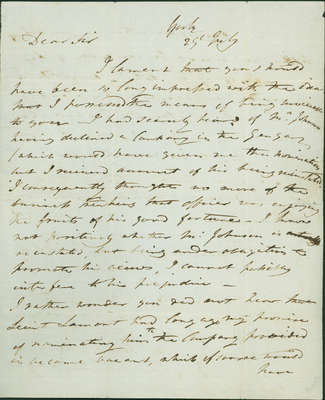 York
29th July
Dear Sir
I lament that you should
have been so long impressed with the idea
that I possessed the means of being
to you — I had scarcely heard of Mr Johnson
having declined a in the
(which would have given me the nomination
but I received account of his being reinstated
I consequently thought no more of the
business thinking that officer was enjoying
the fruits of his good fortune — I know
not positively whether Mr Johnson is
reinstated, but being under obligation to
promote his views, I cannot possibly
interfere to his prejudice —
I rather wonder you did not hear from
Lieut Lamont had long ago my promise
of nominating him to the Company provided
it became vacant, which of course would
have